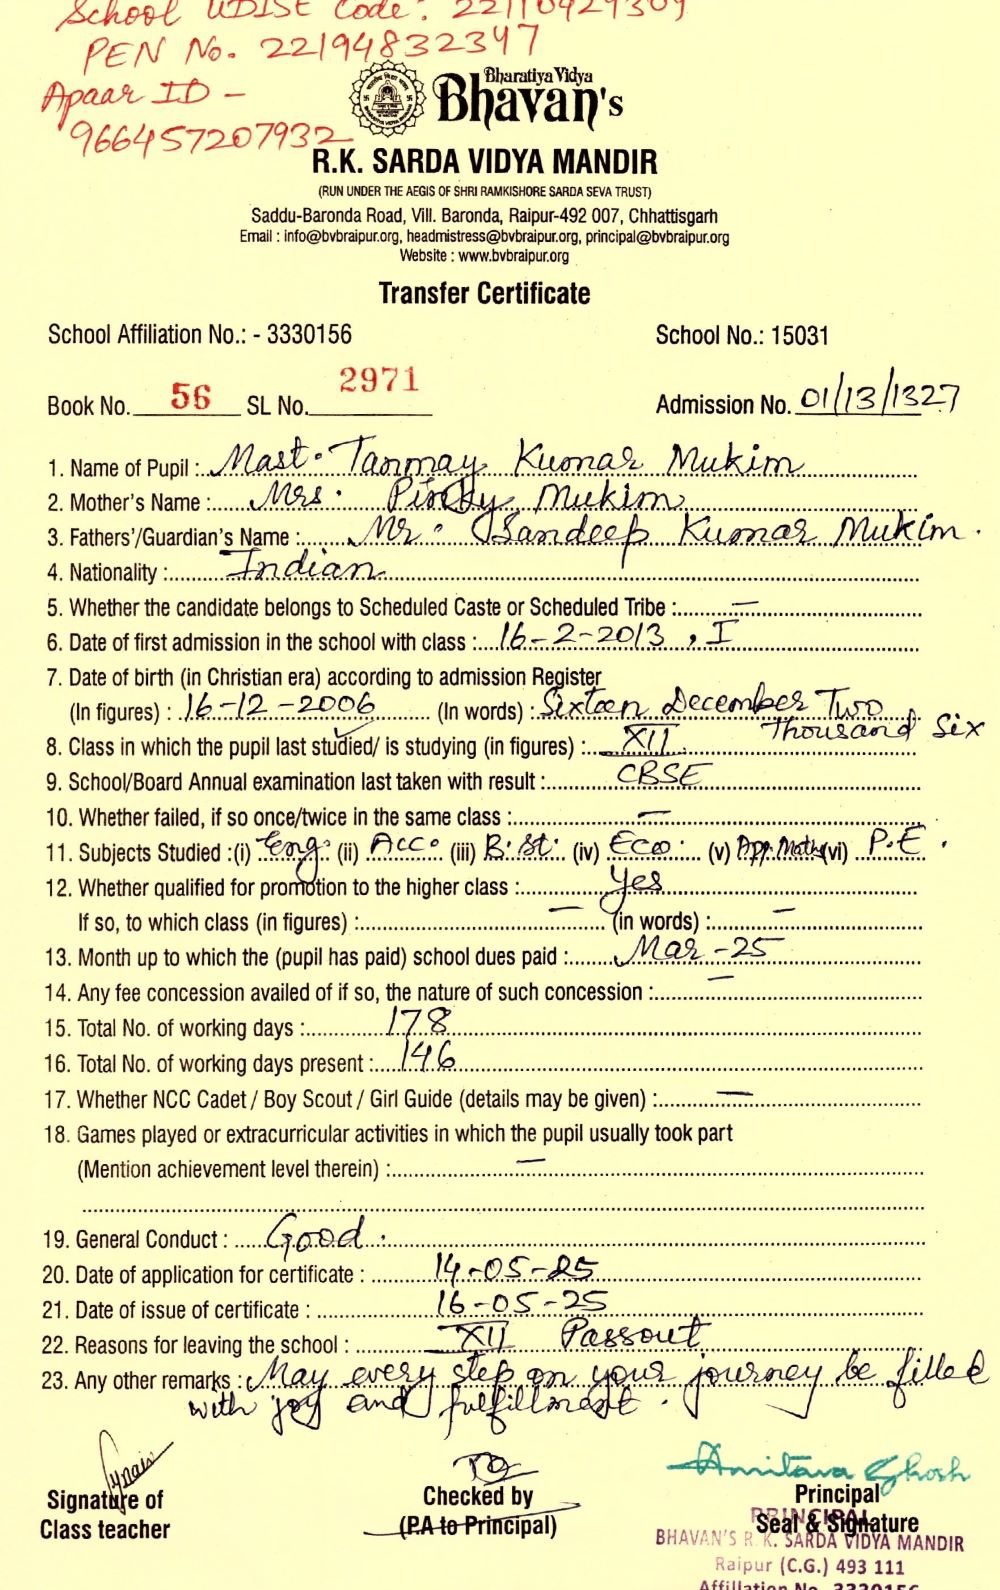 School UDISE Code: 22110429309
PEN No. 22194832347
Apaar ID -
966457207932
Bharatiya Vidya
Bhavan's
R.K. SARDA VIDYA MANDIR
(RUN UNDER THE AEGIS OF SHRI RAMKISHORE SARDA SEVA TRUST)
Saddu-Baronda Road, Vill. Baronda, Raipur-492 007, Chhattisgarh
Email : info@bvbraipur.org, headmistress@bvbraipur.org, principal@bvbraipur.org
Website : www.bvbraipur.org
Transfer Certificate
School Affiliation No.: - 3330156 School No.: 15031
Book No. 56 SL No. 2971 Admission No. 01/13/1327
1. Name of Pupil : Mast. Tanmay Kumar Mukim
2. Mother's Name : Mrs. Pinky Mukim
3. Fathers'/Guardian's Name : Mr. Sandeep Kumar Mukim.
4. Nationality : Indian
5. Whether the candidate belongs to Scheduled Caste or Scheduled Tribe : —
6. Date of first admission in the school with class : 16-2-2013, I
7. Date of birth (in Christian era) according to admission Register
(In figures) : 16-12-2006 (In words) : Sixteen December Two
Thousand Six
8. Class in which the pupil last studied/ is studying (in figures) : XII
9. School/Board Annual examination last taken with result : CBSE
10. Whether failed, if so once/twice in the same class : —
11. Subjects Studied :(i) Eng. (ii) Acc. (iii) B.St. (iv) Eco. (v) App.Math (vi) P.E.
12. Whether qualified for promotion to the higher class : Yes
If so, to which class (in figures) : — (in words) : —
13. Month up to which the (pupil has paid) school dues paid : Mar-25
14. Any fee concession availed of if so, the nature of such concession : —
15. Total No. of working days : 178
16. Total No. of working days present : 146
17. Whether NCC Cadet / Boy Scout / Girl Guide (details may be given) : —
18. Games played or extracurricular activities in which the pupil usually took part
(Mention achievement level therein) : —
19. General Conduct : Good.
20. Date of application for certificate : 14-05-25
21. Date of issue of certificate : 16-05-25
22. Reasons for leaving the school : XII Passout
23. Any other remarks : May every step on your journey be filled
with joy and fulfillment.
Amitava Ghosh
Signature of Checked by Principal
Class teacher (P.A to Principal) Seal & Signature
PRINCIPAL
BHAVAN'S R. K. SARDA VIDYA MANDIR
Raipur (C.G.) 493 111
Affiliation No. 3330156